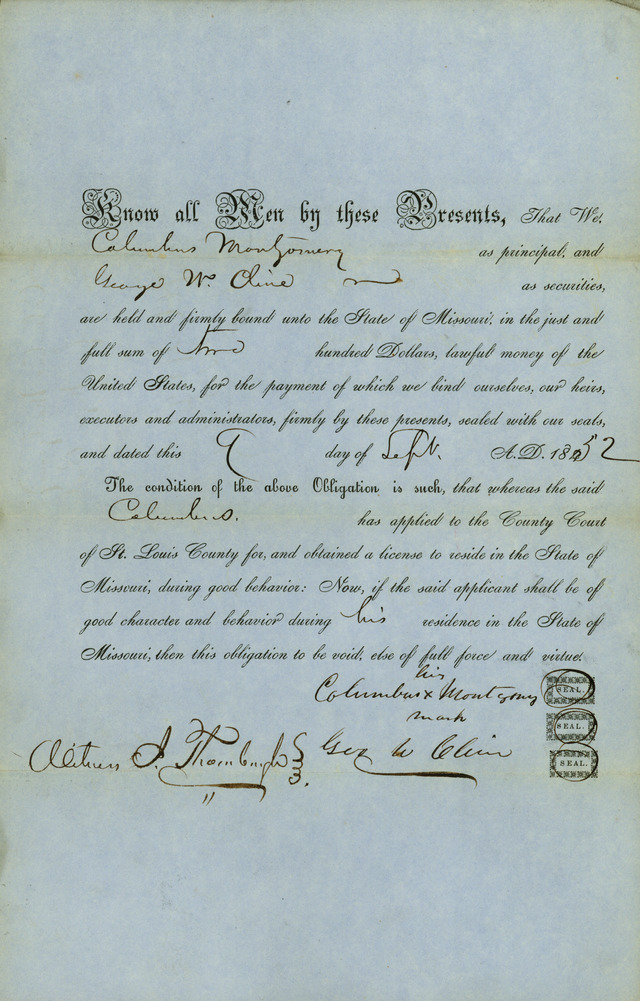 Know all Men by these Presents, That We,
Columbus Montgomery as principal, and
George W. Cline as securities,
are held and firmly bound unto the State of Missouri, in the just and
full sum of two hundred Dollars, lawful money of the
United States, for the payment of which we bind ourselves, our heirs,
executors and administrators, firmly by these presents, sealed with our seals,
and dated this 9 day of Sept. A.D. 1852
The condition of the above Obligation is such, that whereas the said
Columbus. has applied to the County Court
of St. Louis County for, and obtained a license to reside in the State of
Missouri, during good behavior: Now, if the said applicant shall be of
good character and behavior during his residence in the State of
Missouri, then this obligation to be void, else of full force and virtue.
his
Columbus x Montgomy SEAL.
mark
SEAL.
Witness J. Thornburgh Geo W Cline SEAL.